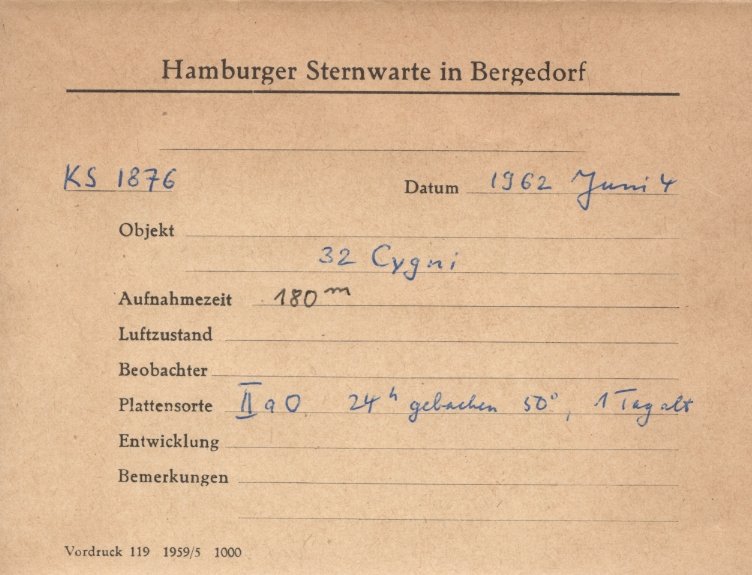 Hamburger Sternwarte in Bergedorf
KS 1876 Datum 1962 Juni 4
Objekt
32 Cygni
Aufnahmezeit 180 m
Luftzustand
Beobachter
Plattensorte II a O 24 h gebacken 50°, 1 Tag alt
Entwicklung
Bemerkungen
Vordruck 119 1959/5 1000